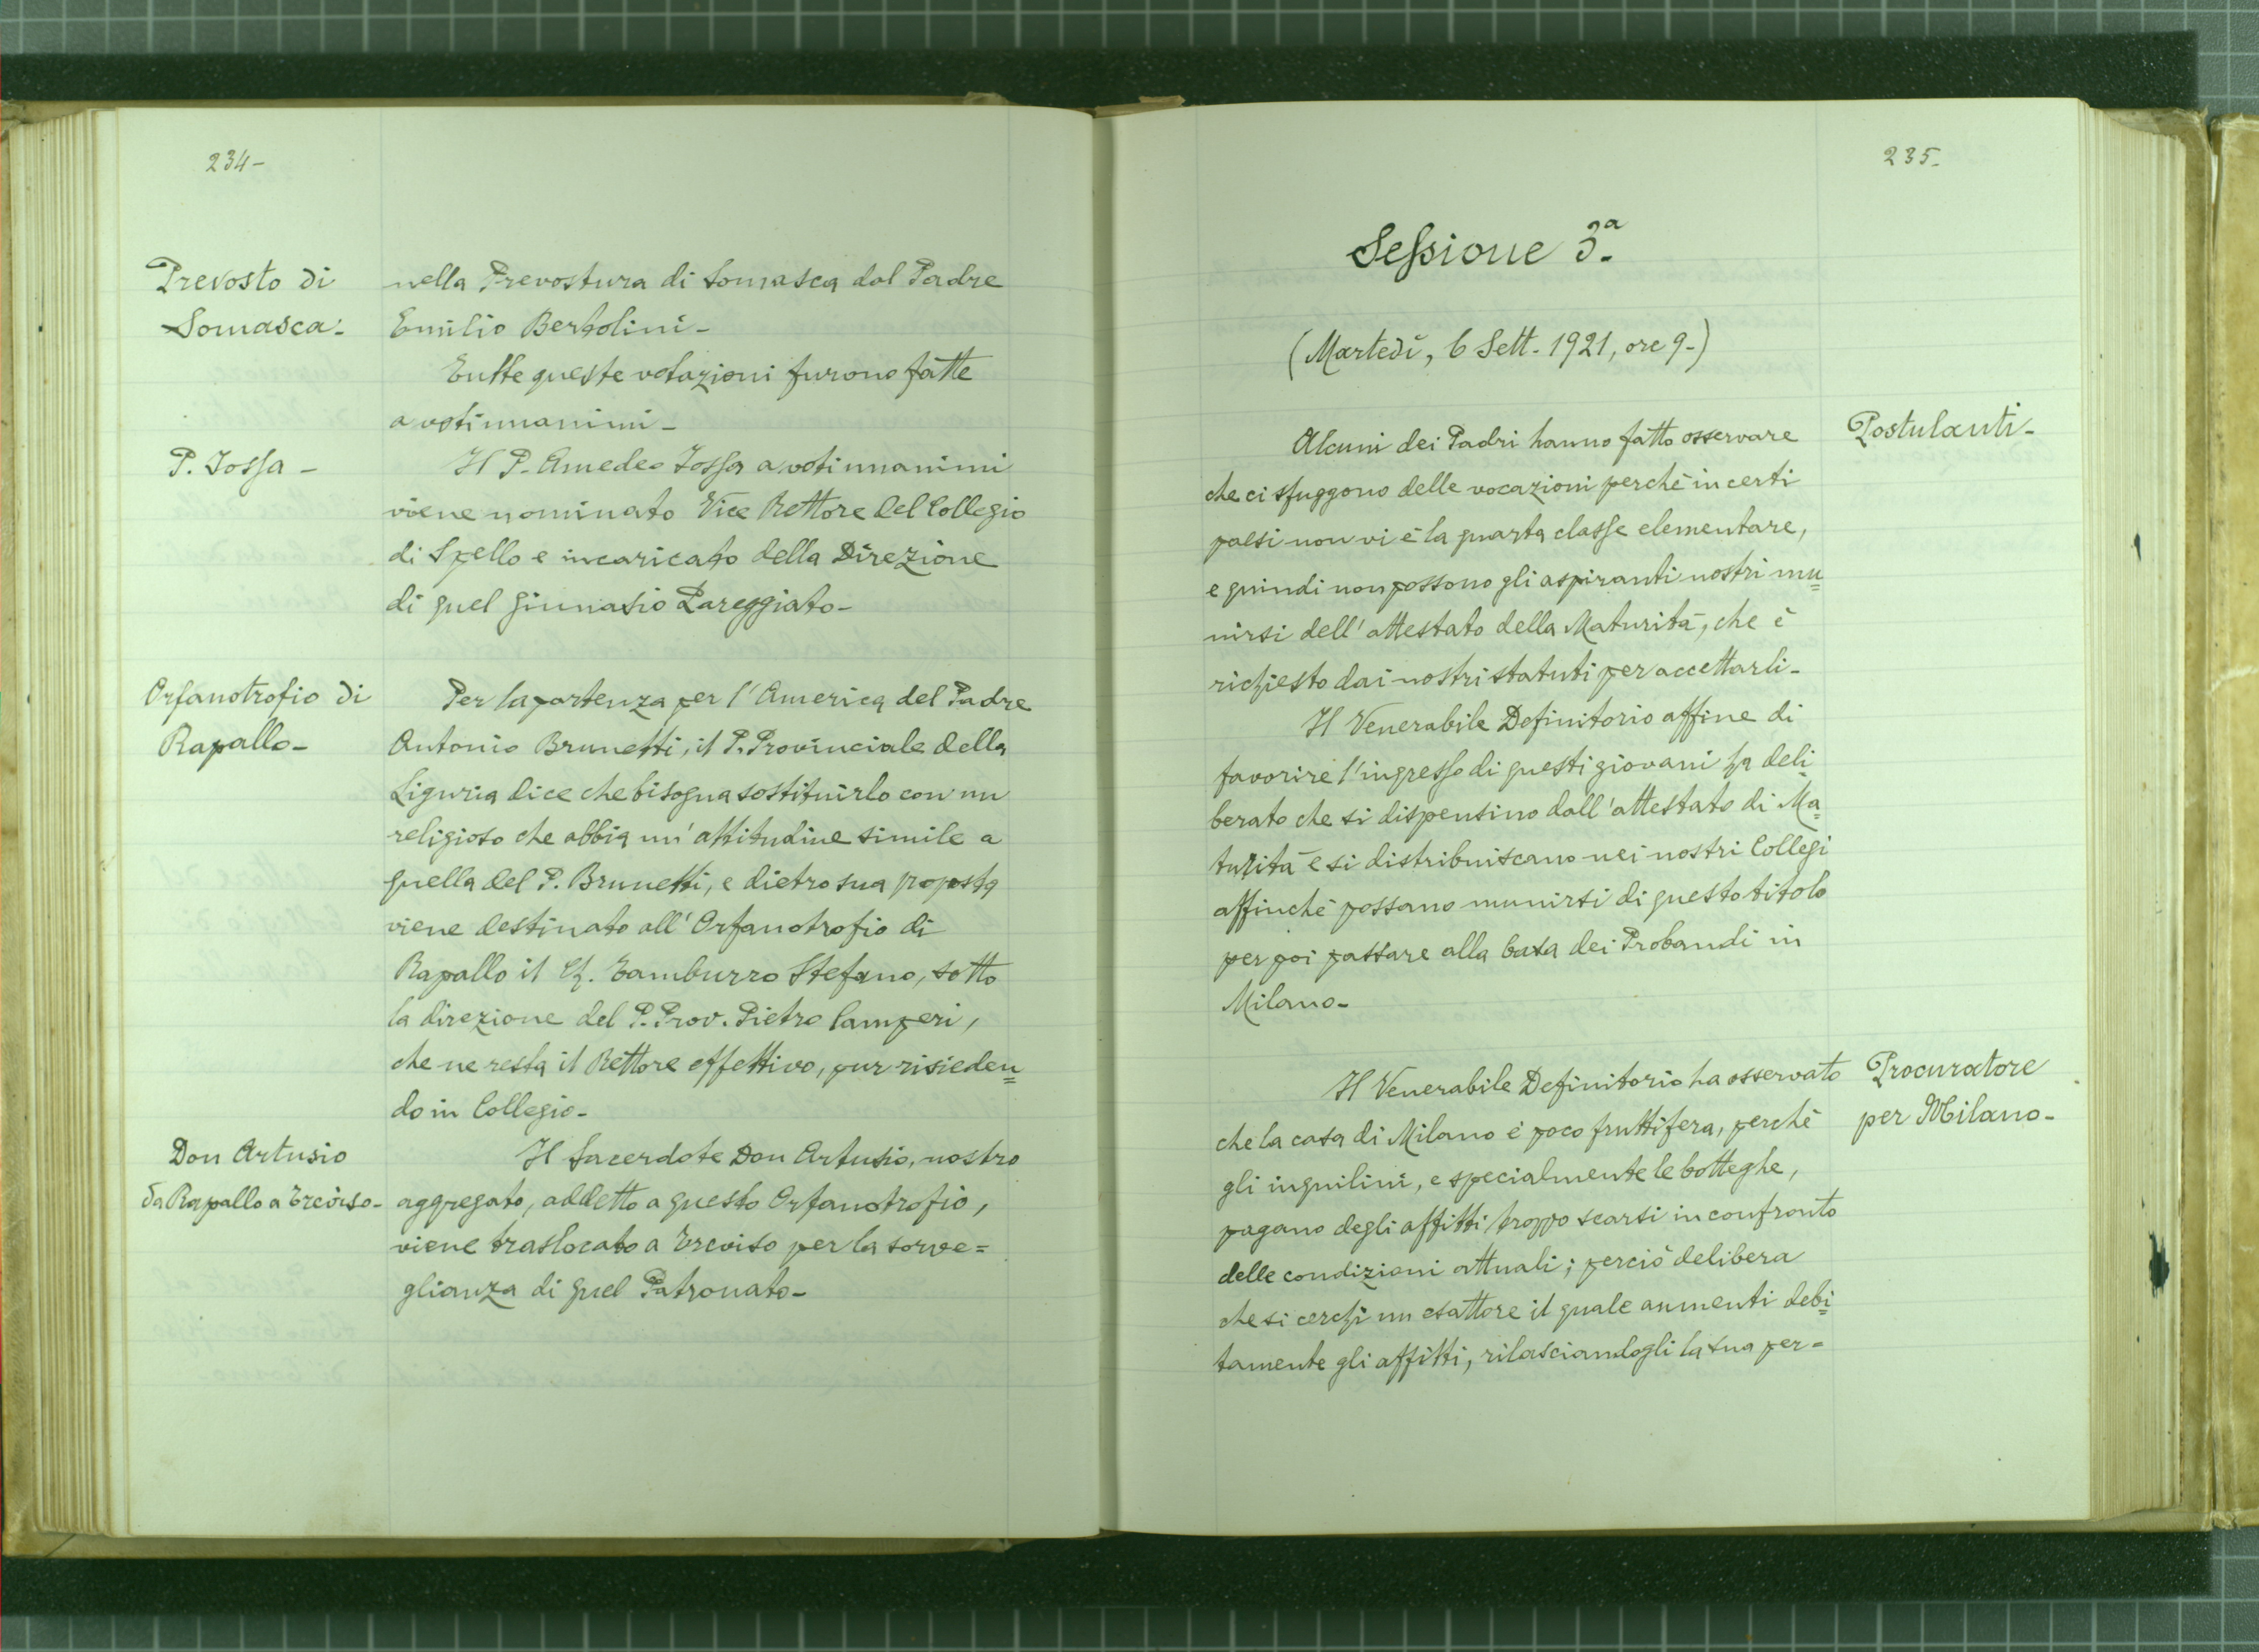 234-
Prevosto di
Somasca.-
nella Prevostura di Somasca dal Padre
Emilio Bertolini-
Tutte queste votazioni furono fatte
a voti unanimi-
P. Iossa -
Il P. Amedeo Iossa a voti unanimi
viene nominato Vice Rettore del Collegio
di Spello e incaricato della Direzione
di quel Ginnasio Pareggiato-
Orfanotrofio di
Rapallo-
Per la partenza per l'America del Padre
Antonio Brunetti, il P. Provinciale della
Liguria dice che bisogna sostituirlo con un
religioso che abbia un'attitudine simile a
quella del P. Brunetti, e dietro sua proposta
viene destinato all'Orfanotrofio di
Rapallo il Ch. Tamburro Stefano, sotto
la direzione del P. Prov. Pietro Camperi,
che ne resta il Rettore effettivo, pur risieden=
do in Collegio-
Don Artusio
da Rapallo a Treviso-
Il Sacerdote Don Artusio, nostro
aggregato, addetto a questo Orfanotrofio,
viene traslocato a Treviso per la sorve=
glianza di quel Patronato-
235-
Sessione 3ª
(Martedì, 6 Sett. 1921, ore 9-)
Postulanti-
Alcuni dei Padri hanno fatto osservare
che ci sfuggono delle vocazioni perchè in certi
paesi non vi è la quarta classe elementare,
e quindi non possono gli aspiranti nostri mu=
nirsi dell'attestato della Maturità, che è
richiesto dai nostri statuti per accettarli-
Il Venerabile Definitorio affine di
favorire l'ingresso di questi giovani ha deli
berato che si dispensino dall'attestato di Ma=
turità e si distribuiscano nei nostri Collegi
affinchè possano munirsi di questo titolo
per poi passare alla Casa dei Probandi in
Milano-
Procuratore
per Milano-
Il Venerabile Definitorio ha osservato
che la casa di Milano è poco fruttifera, perchè
gli inquilini, e specialmente le botteghe,
pagano degli affitti troppo scarsi in confronto
delle condizioni attuali; perciò delibera
che si cerchi un esattore il quale aumenti debi=
tamente gli affitti, rilasciandogli la sua per=